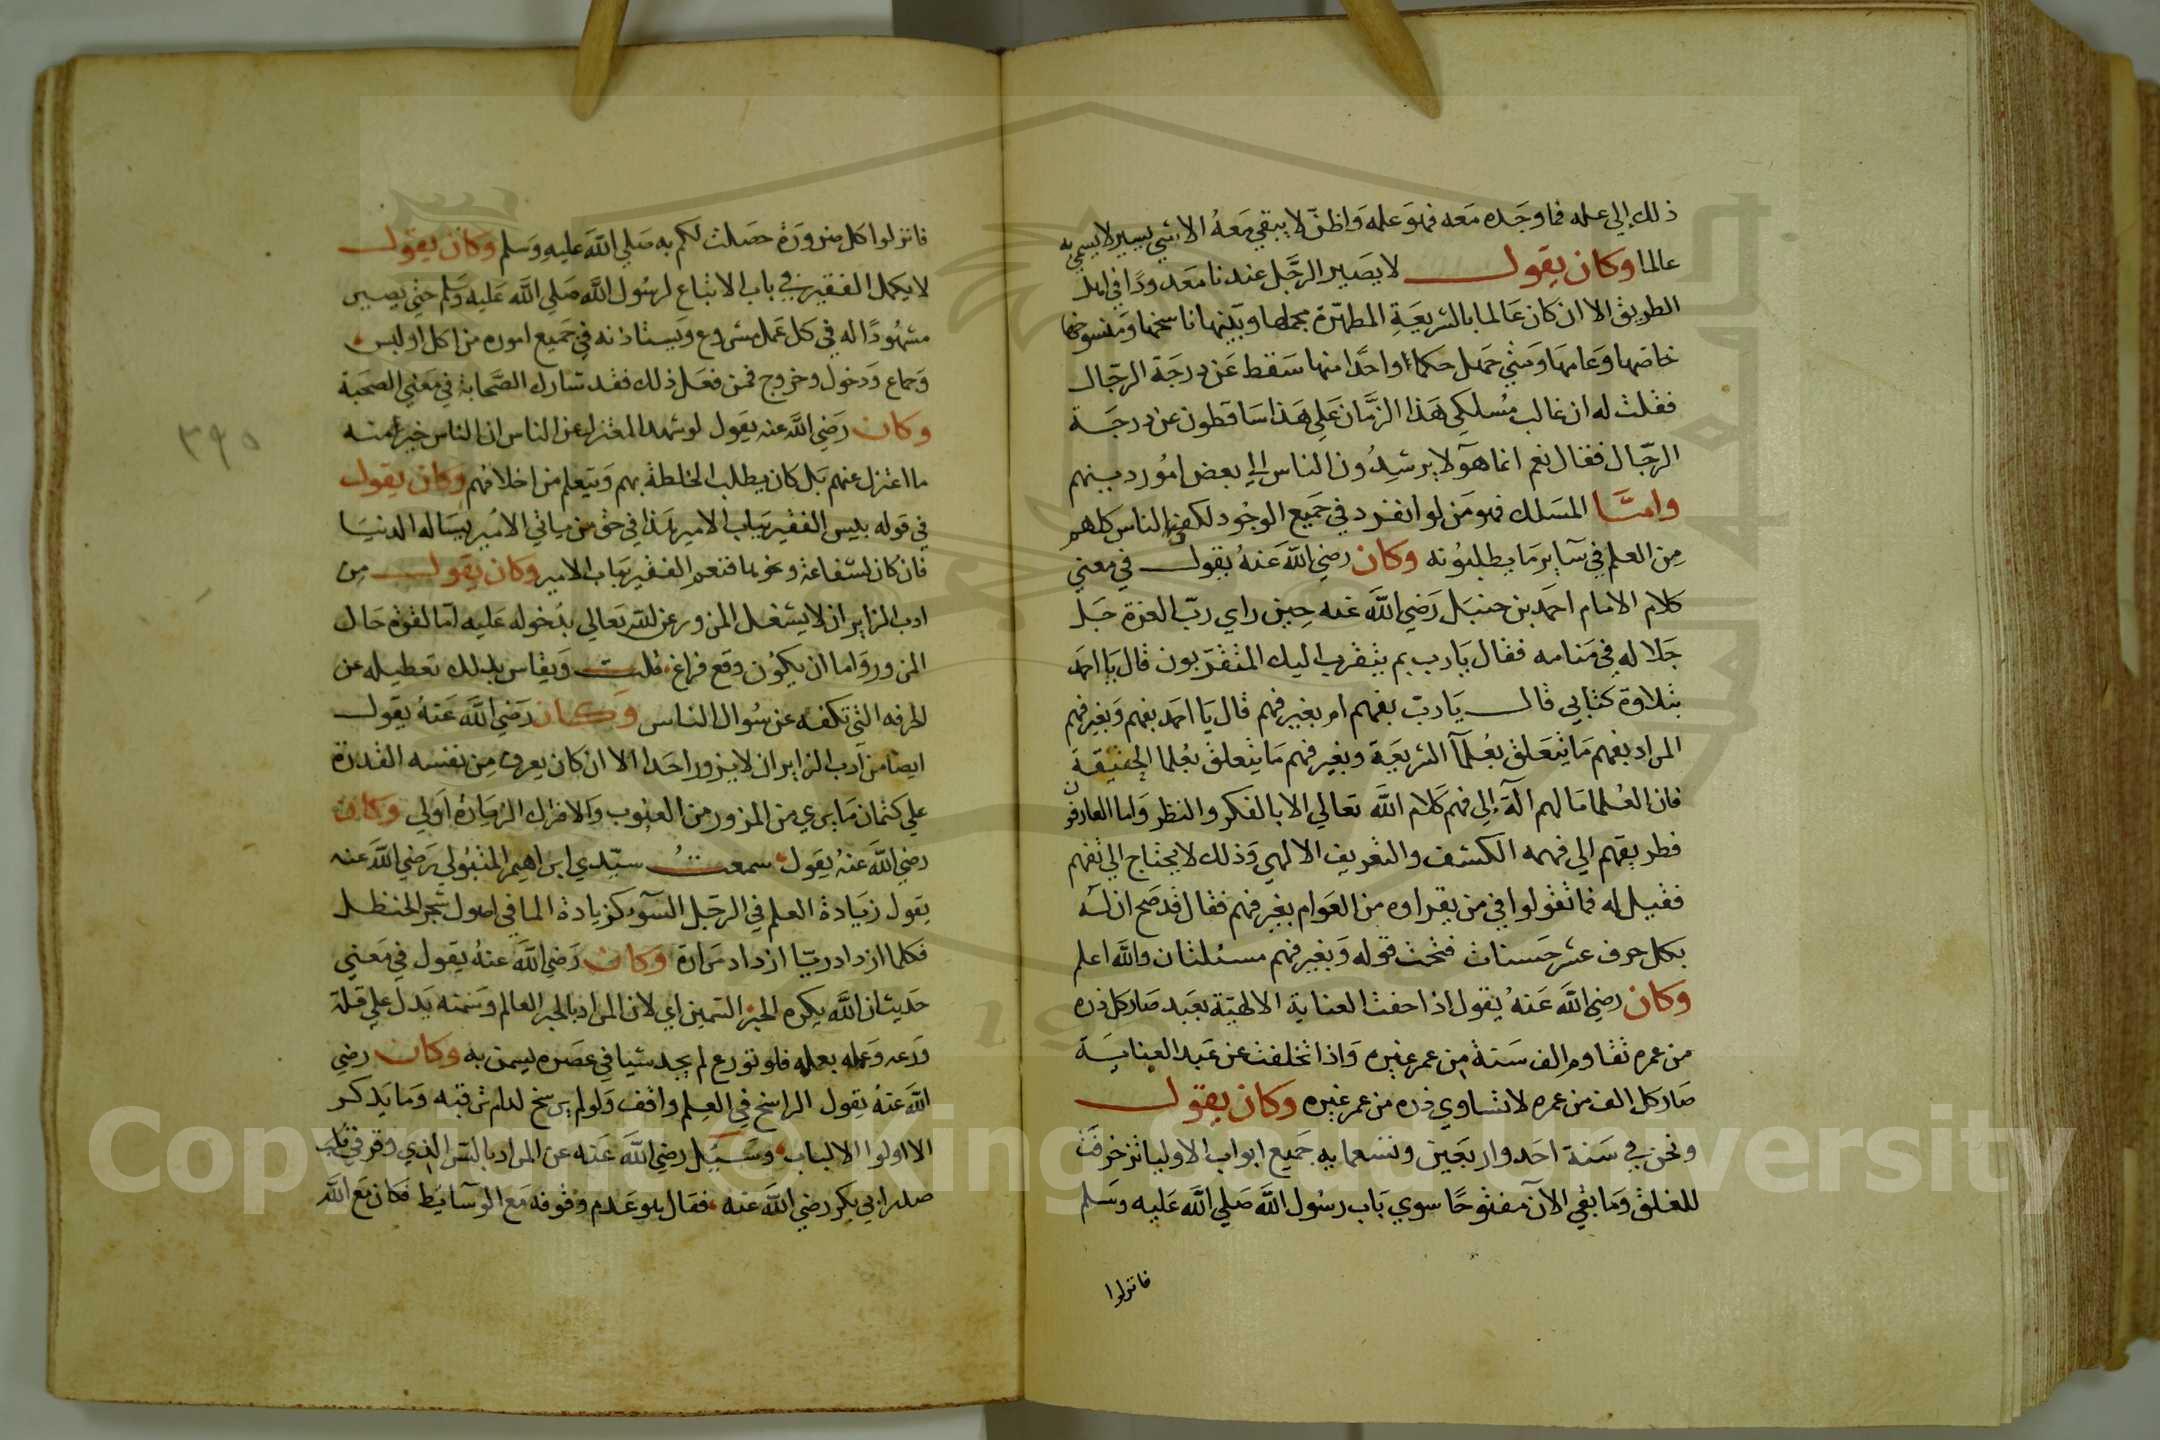 ذلك إلي علمه فما وجده معه فهو علمه واظن لا يبقي معه الا شي يسير لا يسمي به
عالما وكان يقول لا يصير الرجل عندنا معدودا في اهل
الطريق الا ان كان عالما بالشريعة المطهرة مجملها ومبينها ناسخها ومنسوخها
خاصها وعامها ومتي جهل حكما واحدا منها سقط عن درجة الرجال
فقلت له ان غالب مسلكي هذا الزمان علي هذا ساقطون عن درجة
الرجال فقال نعم انما هولا يرشدون الناس الي بعض امور دينهم
واما المسلك فهو من لو انفرد في جميع الوجود لكفي الناس كلهم
من العلم في ساير ما يطلبونه وكان رضي الله عنه يقول في معني
كلام الامام احمد بن حنبل رضي الله عنه حين راي رب العزة جل
جلاله في منامه فقال يارب بم يتقرب اليك المتقربون قال يا احمد
بتلاوة كتابي قال يارب بفهم ام بغير فهم قال يا احمد بفهم وبغير فهم
المراد بفهم ما يتعلق بعلما الشريعة وبغير فهم ما يتعلق بعلما الحقيقة
فان العلما مالهم الة إلي فهم كلام الله تعالي الا بالفكر والنظر واما العارفون
فطريقهم الي فهمه الكشف والتعريف الالهي وذلك لا يحتاج الي تفهم
فقيل له فما تقولوا في من يقراوه من العوام بغير فهم فقال قد صح ان له
بكل حرف عشر حسنات فتحت قوله وبغير فهم مسئلتان والله اعلم
وكان رضي الله عنه يقول اذا حفت العناية الالهية بعبد صار كل ذره
من عمره تقاوم الف سنة من عمر غيره واذا تخلفت عن عبد العناية
صار كل الف من عمره لا تساوي ذره من عمر غيره وكان يقول
ونحن في سنة احد واربعين وتسعمايه جميع ابواب الاوليا تزحزحت
للغلق وما بقي الآن مفتوحا سوي باب رسول الله صلي الله عليه وسلم
فانزلوا
فانزلوا كل ضرورة حصلت لكم به صلي الله عليه وسلم وكان يقول
لا يكمل الفقير في باب الاتباع لرسول الله صلي الله عليه وسلم حتي يصير
مشهودا له في كل عمل مشروع ويستاذنه في جميع اموره من اكل اولبس
وجماع ودخول وخروج فمن فعل ذلك فقد شارك الصحابة في معني الصحبة
وكان رضي الله عنه يقول لو شهد المعتزل عن الناس ان الناس خير منه
ما اعتزل عنهم بل كان يطلب الخلطة بهم ويتعلم من اخلاقهم وكان يقول
في قوله بيس الفقير بباب الامير هذا في حق من ياتي الامير يساله الدنيا
فان كان لشفاعة ونحوها فنعم الفقير بباب الامير وكان يقول من
ادب الزاير ان لا يشغل المزور عن الله تعالي بدخوله عليه اما لقوة حال
المزور واما ان يكون وقع فراغ قلت ويقاس بذلك تعطيله عن
الحرفه التي تكفه عن سوال الناس وكان رضي الله عنه يقول
ايضا من ادب الزاير ان لا يزور احدا الا ان كان يعرف من نفسه القدرة
علي كتمان ما يري من المزور من العيوب والا فترك الزيارة اولي وكان
رضي الله عنه يقول سمعت سيدي ابراهيم المتبولي رضي الله عنه
يقول زيادة العلم في الرجل السوء كزيادة الما في اصول شجر الحنظل
فكلما ازداد ريا ازداد مرارة وكان رضي الله عنه يقول في معني
حديث ان الله يكره الحبر السمين اي لان المراد بالحبر العالم وسمنه يدل علي قلة
ورعه وعمله بعلمه فلو تورع لم يجد شيا في عصره يسمن به وكان رضي
الله عنه يقول الراسخ في العلم واقف ولو لم يرسخ لدام ترقيه وما يذكر
الا اولوا الالباب وسيل رضي الله عنه عن المراد بالسر الذي وقر في قلب
صدر ابي بكر رضي الله عنه فقال هو عدم وقوفه مع الوسايط فكان مع الله
٣٩٥
Copyright © King Saud University